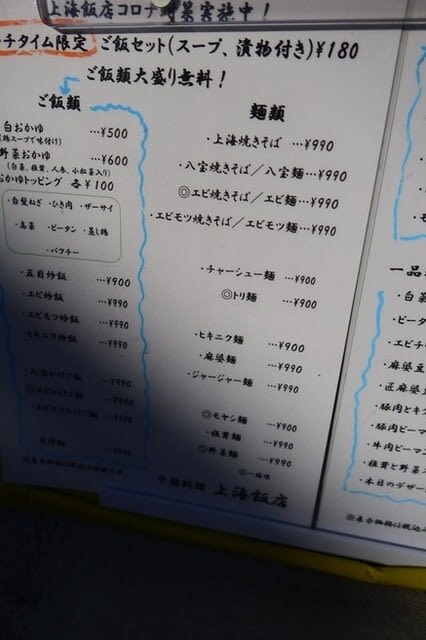 上海飯店コロナ対策実施中！
チタイム限定 ご飯セット(スープ、漬物付き)¥180
ご飯類大盛り無料！
ご飯類
白おかゆ …¥500
(鶏スープで味付け)
野菜おかゆ …¥600
(白菜、椎茸、人参、小松菜入り)
おかゆトッピング 各¥100
・白髪ねぎ ・ひき肉 ・ザーサイ
・高菜 ・ピータン ・蒸し鶏
・パクチー
・五目炒飯 …¥900
・エビ炒飯 …¥990
・エビモツ炒飯 …¥990
・ヒキニク炒飯 …¥990
・八宝かけご飯 …¥990
◎エビかけご飯 …¥990
・エビモツかけご飯 …¥990
・天津飯
麺類
・上海焼きそば …¥990
・八宝焼きそば／八宝麺…¥990
◎エビ焼きそば／エビ麺…¥990
・エビモツ焼きそば／エビモツ麺…¥990
・チャーシュー麺 …¥900
◎トリ麺 …¥900
・ヒキニク麺 …¥900
・麻婆麺 …¥990
・ジャージャー麺 …¥990
◎モヤシ麺 …¥900
・椎茸麺 …¥990
◎野菜麺 …¥990
◎…塩味
中国料理 上海飯店
一品
・白菜
・ピータ
・エビチ
・麻婆豆
・匠麻婆豆
・豚肉とキク
・豚肉ピーマン
・牛肉ピーマン
・椎茸と野菜
・本日のデザー
※表示価格は税込